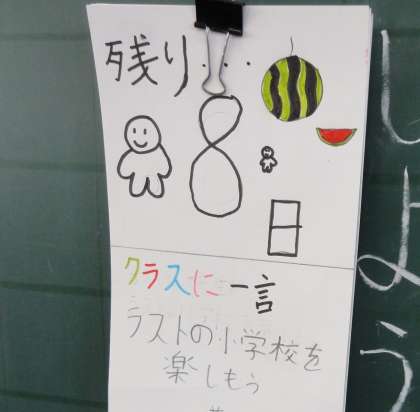 残り・・・
8
日
クラスに一言
ラストの小学校を
楽しもう
しよう